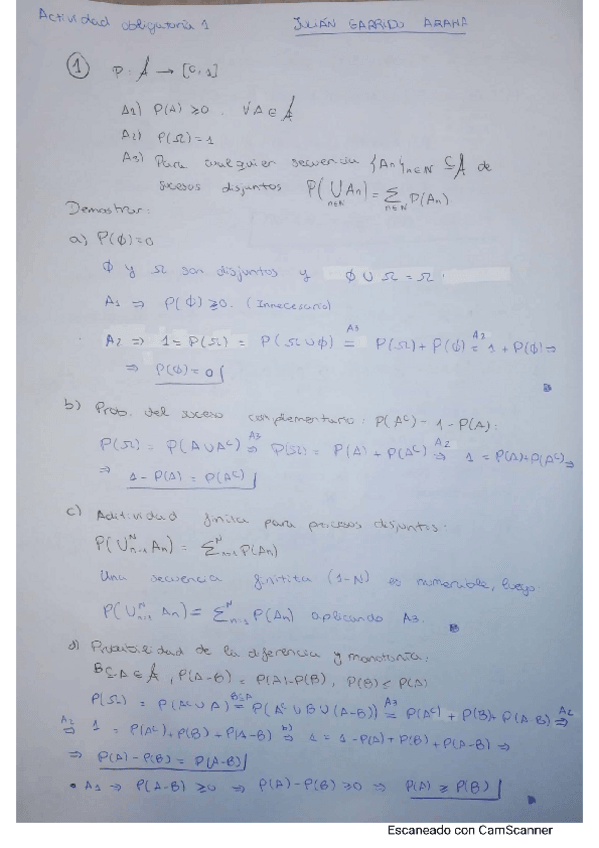 Actividad obligatoria 1 JULIÁN GARRIDO ARANA
① P: A → [0,1]
A1) P(A) ≥ 0 ∀A ∈ A
A2) P(Ω) = 1
A3) Para cualquier secuencia {An}n∈N ⊆ A de
sucesos disjuntos P(⋃n∈N An) = Σn∈N P(An)
Demostrar:
a) P(∅)=0
∅ y Ω son disjuntos y ∅ ∪ Ω = Ω.
A1 ⇒ P(∅) ≥ 0. (Innecesario)
A2 ⇒ 1 = P(Ω) = P(Ω∪∅) =^A3 P(Ω) + P(∅) =^A2 1 + P(∅) ⇒
⇒ P(∅) = 0
b) Prob. del suceso complementario: P(A^c) = 1 - P(A):
P(Ω) = P(A∪A^c) ⇒^A3 P(Ω) = P(A) + P(A^c) ⇒^A2 1 = P(A)+P(A^c) ⇒
⇒ 1 - P(A) = P(A^c)
c) Aditividad finita para procesos disjuntos:
P(⋃_{n=1}^N An) = Σ_{n=1}^N P(An)
Una secuencia finitita (1-N) es numerable, luego
P(⋃_{n=1}^N An) = Σ_{n=1}^N P(An) aplicando A3.
d) Probabilidad de la diferencia y monotonía:
B⊆A ∈ A, P(A-B) = P(A)-P(B), P(B) ≤ P(A)
P(Ω) = P(A^c ∪ A) =^{B⊆A} P(A^c ∪ B ∪ (A-B)) =^A3 P(A^c) + P(B) + P(A-B) ⇒^A2
⇒^A2 1 = P(A^c) + P(B) + P(A-B) ⇒^b) 1 = 1 - P(A) + P(B) + P(A-B) ⇒
⇒ P(A) - P(B) = P(A-B)
• A1 ⇒ P(A-B) ≥ 0 ⇒ P(A) - P(B) ≥ 0 ⇒ P(A) ≥ P(B)
Escaneado con CamScanner